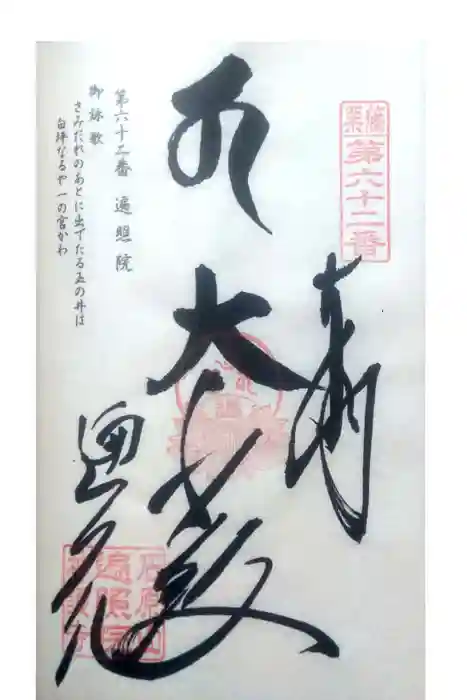 篠栗
第六十二番
奉納
大悲殿
遍照院
第六十二番 遍照院
御詠歌
さみだれのあとに出でたる玉の井は
白坪なるや一の宮かわ
石原山
遍照院